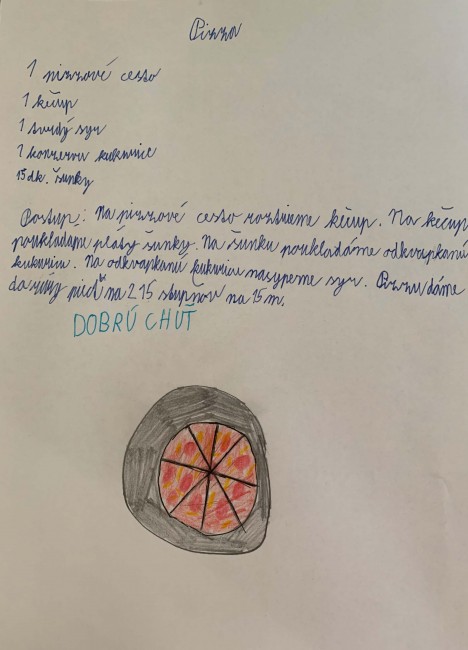 Pizza
1 pizzové cesto
1 kečup
1 tvrdý syr
1 konzerva kukurice
15 dk. šunky
Postup: Na pizzové cesto roztrieme kečup. Na kečup
poukladáme pláty šunky. Na šunku poukladáme odkvapkanú
kukuricu. Na odkvapkanú kukuricu nasypeme syr. Pizzu dáme
piecť na 215 stupňov na 15 m.
DOBRÚ CHUŤ